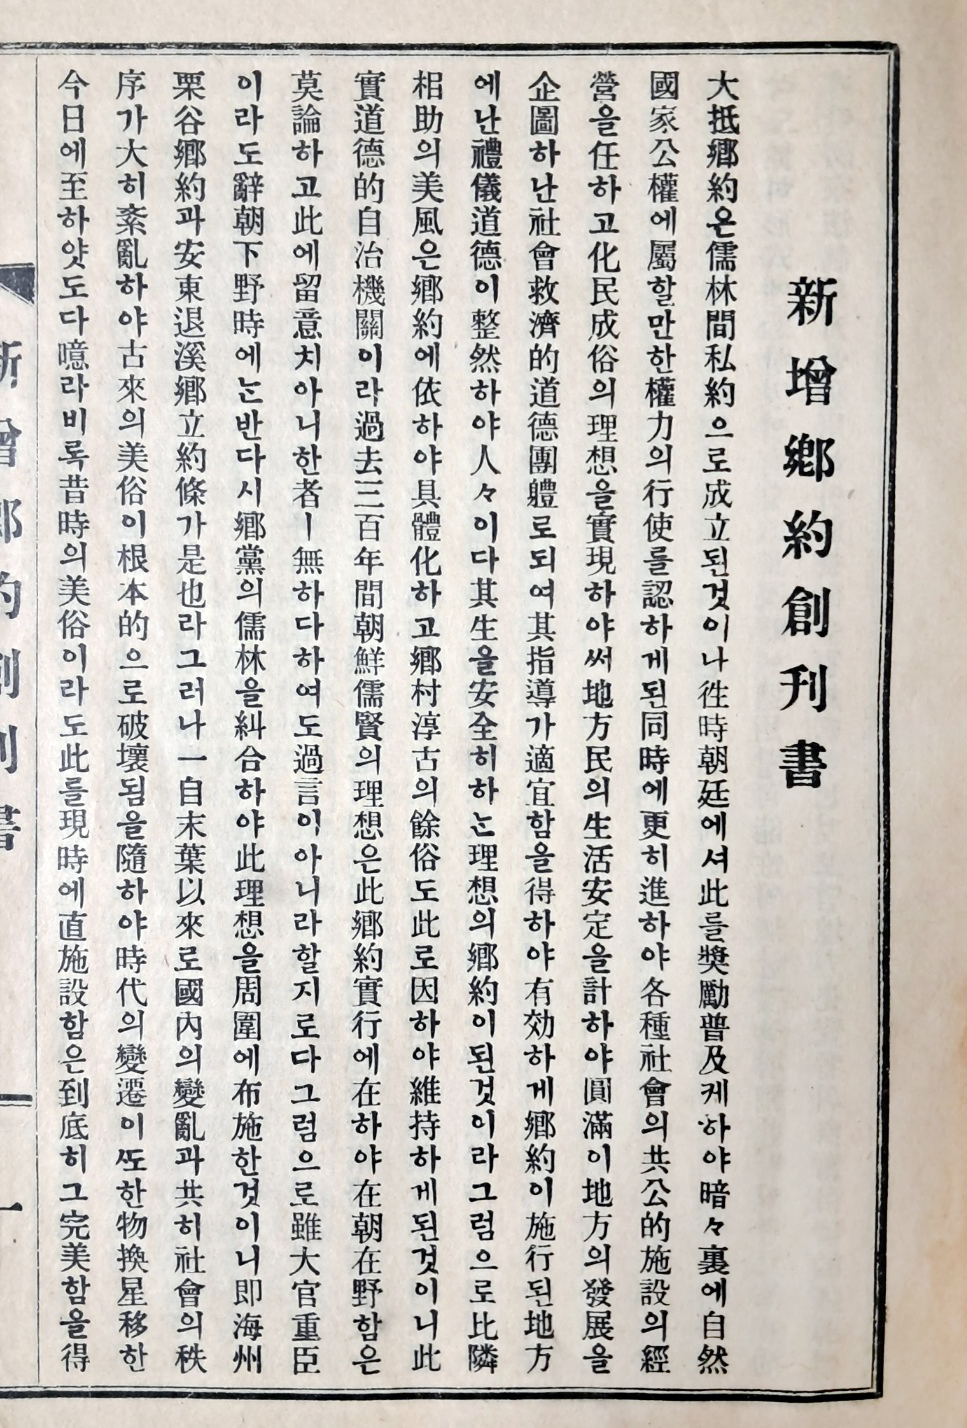 新增鄕約創刊書
大抵鄕約은儒林間私約으로成立된것이나徃時朝廷에셔此를奬勵普及케하야暗々裏에自然
國家公權에屬할만한權力의行使를認하게된同時에更히進하야各種社會의共公的施設의經
營을任하고化民成俗의理想을實現하야써地方民의生活安定을計하야圓滿이地方의發展을
企圖하난社會救濟的道德團體로되여其指導가適宜함을得하야有効하게鄕約이施行된地方
에난禮儀道德이整然하야人々이다其生을安全히하는理想의鄕約이된것이라그럼으로比隣
相助의美風은鄕約에依하야具體化하고鄕村淳古의餘俗도此로因하야維持하게된것이니此
實道德的自治機關이라過去三百年間朝鮮儒賢의理想은此鄕約實行에在하야在朝在野함은
莫論하고此에留意치아니한者ㅣ無하다하여도過言이아니라할지로다그럼으로雖大官重臣
이라도辭朝下野時에는반다시鄕黨의儒林을糾合하야此理想을周圍에布施한것이니即海州
栗谷鄕約과安東退溪鄕立約條가是也라그러나一自末葉以來로國內의變亂과共히社會의秩
序가大히紊亂하야古來의美俗이根本的으로破壞됨을隨하야時代의變遷이ᄯᅩ한物換星移한
今日에至하얏도다噫라비록昔時의美俗이라도此를現時에直施設함은到底히그完美함을得
新增鄕約創刊書
一